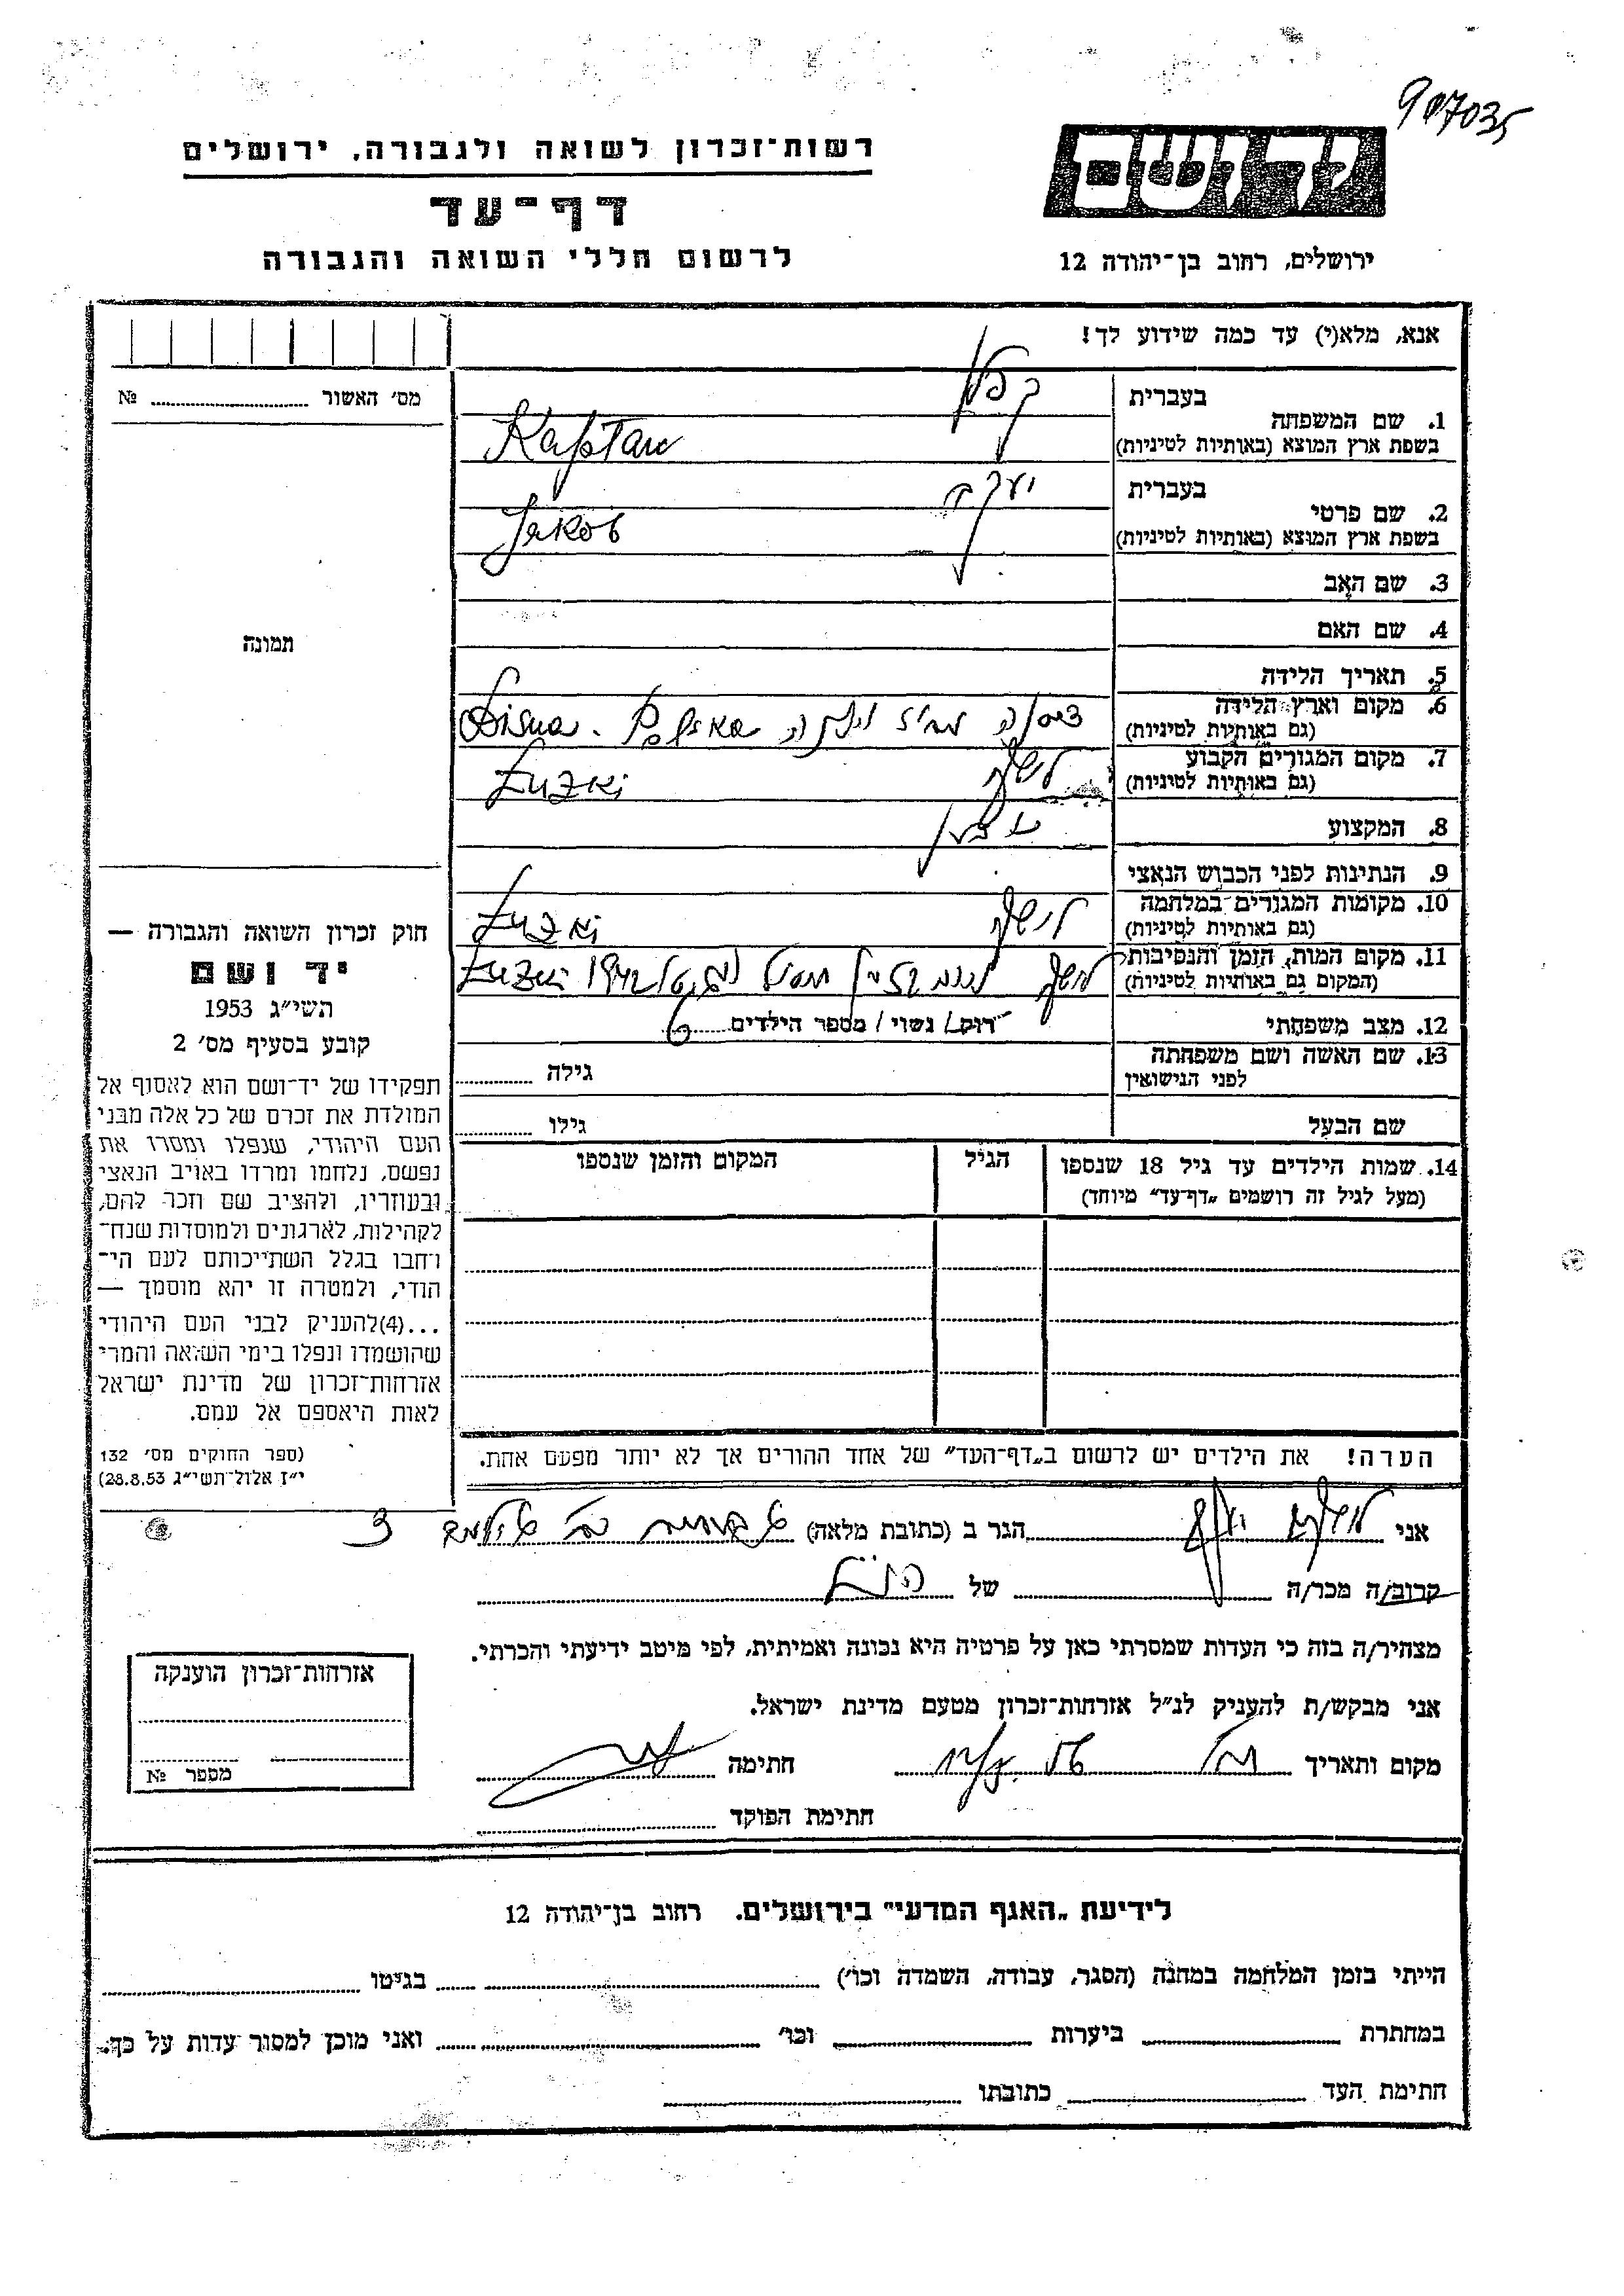 907035
יד ושם
רשות־זכרון לשואה ולגבורה, ירושלים
דף־עד
לרשום חללי השואה והגבורה
ירושלים, רחוב בן־יהודה 12
אנא, מלא(י) עד כמה שידוע לך!
מס׳ האשור № ..........
תמונה
1. שם המשפחה
בעברית קפלן
בשפת ארץ המוצא (באותיות לטיניות) Kapłan
2. שם פרטי
בעברית יעקב
בשפת ארץ המוצא (באותיות לטיניות) Jakob
3. שם האב
4. שם האם
5. תאריך הלידה
6. מקום וארץ הלידה
(גם באותיות לטיניות) Disna
7. מקום המגורים הקבוע
(גם באותיות לטיניות) Łużki
8. המקצוע
9. הנתינות לפני הכבוש הנאצי
10. מקומות המגורים במלחמה
(גם באותיות לטיניות) Łużki
11. מקום המות, הזמן והנסיבות
(המקום גם באותיות לטיניות) Łużki
12. מצב משפחתי רווק / נשוי / מספר הילדים 6
13. שם האשה ושם משפחתה
לפני הנישואין גילה ..........
שם הבעל גילו ..........
14. שמות הילדים עד גיל 18 שנספו
(מעל לגיל זה רושמים „דף־עד״ מיוחד)
הגיל
המקום והזמן שנספו
הערה! את הילדים יש לרשום ב„דף־העד״ של אחד ההורים אך לא יותר מפעם אחת.
חוק זכרון השואה והגבורה —
יד ושם
תשי״ג 1953
קובע בסעיף מס׳ 2
תפקידו של יד־ושם הוא לאסוף אל
המולדת את זכרם של כל אלה מבני
העם היהודי, שנפלו ומסרו את
נפשם, נלחמו ומרדו באויב הנאצי
ובעוזריו, ולהציב שם וזכר להם,
לקהילות, לארגונים ולמוסדות שנח־
רחבו בגלל השתייכותם לעם הי־
הודי, ולמטרה זו יהא מוסמך —
...(4)להעניק לבני העם היהודי
שהושמדו ונפלו בימי השואה והמרי
אזרחות־זכרון של מדינת ישראל
לאות היאספם אל עמם.
(ספר החוקים מס׳ 132
י״ז אלול־תשי״ג 28.8.53)
אני הגר ב (כתובת מלאה)
קרוב/ה מכר/ה .......... של
מצהיר/ה בזה כי העדות שמסרתי כאן על פרטיה היא נכונה ואמיתית, לפי מיטב ידיעתי והכרתי.
אני מבקש/ת להעניק לנ״ל אזרחות־זכרון מטעם מדינת ישראל.
מקום ותאריך חתימה
חתימת הפוקד ..........
אזרחות־זכרון הוענקה
מספר №
לידיעת „האגף המדעי״ בירושלים. רחוב בן־יהודה 12
הייתי בזמן המלחמה במחנה (הסגר, עבודה, השמדה וכו׳) .......... בגיטו ..........
במחתרת .......... ביערות .......... וכו׳ .......... ואני מוכן למסור עדות על כך.
חתימת העד .......... כתובתו ..........